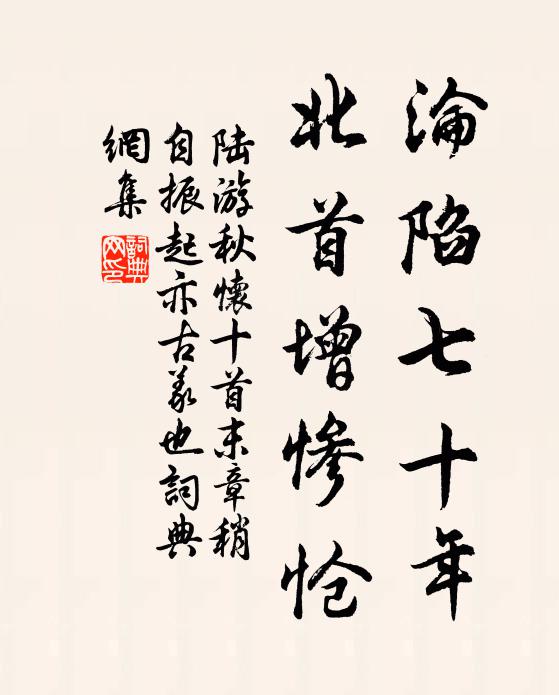 淪陷七十年
北首增慘愴
陸游秋懷十首末章稍
自振起亦古義也詞典
網集
詞典
网印